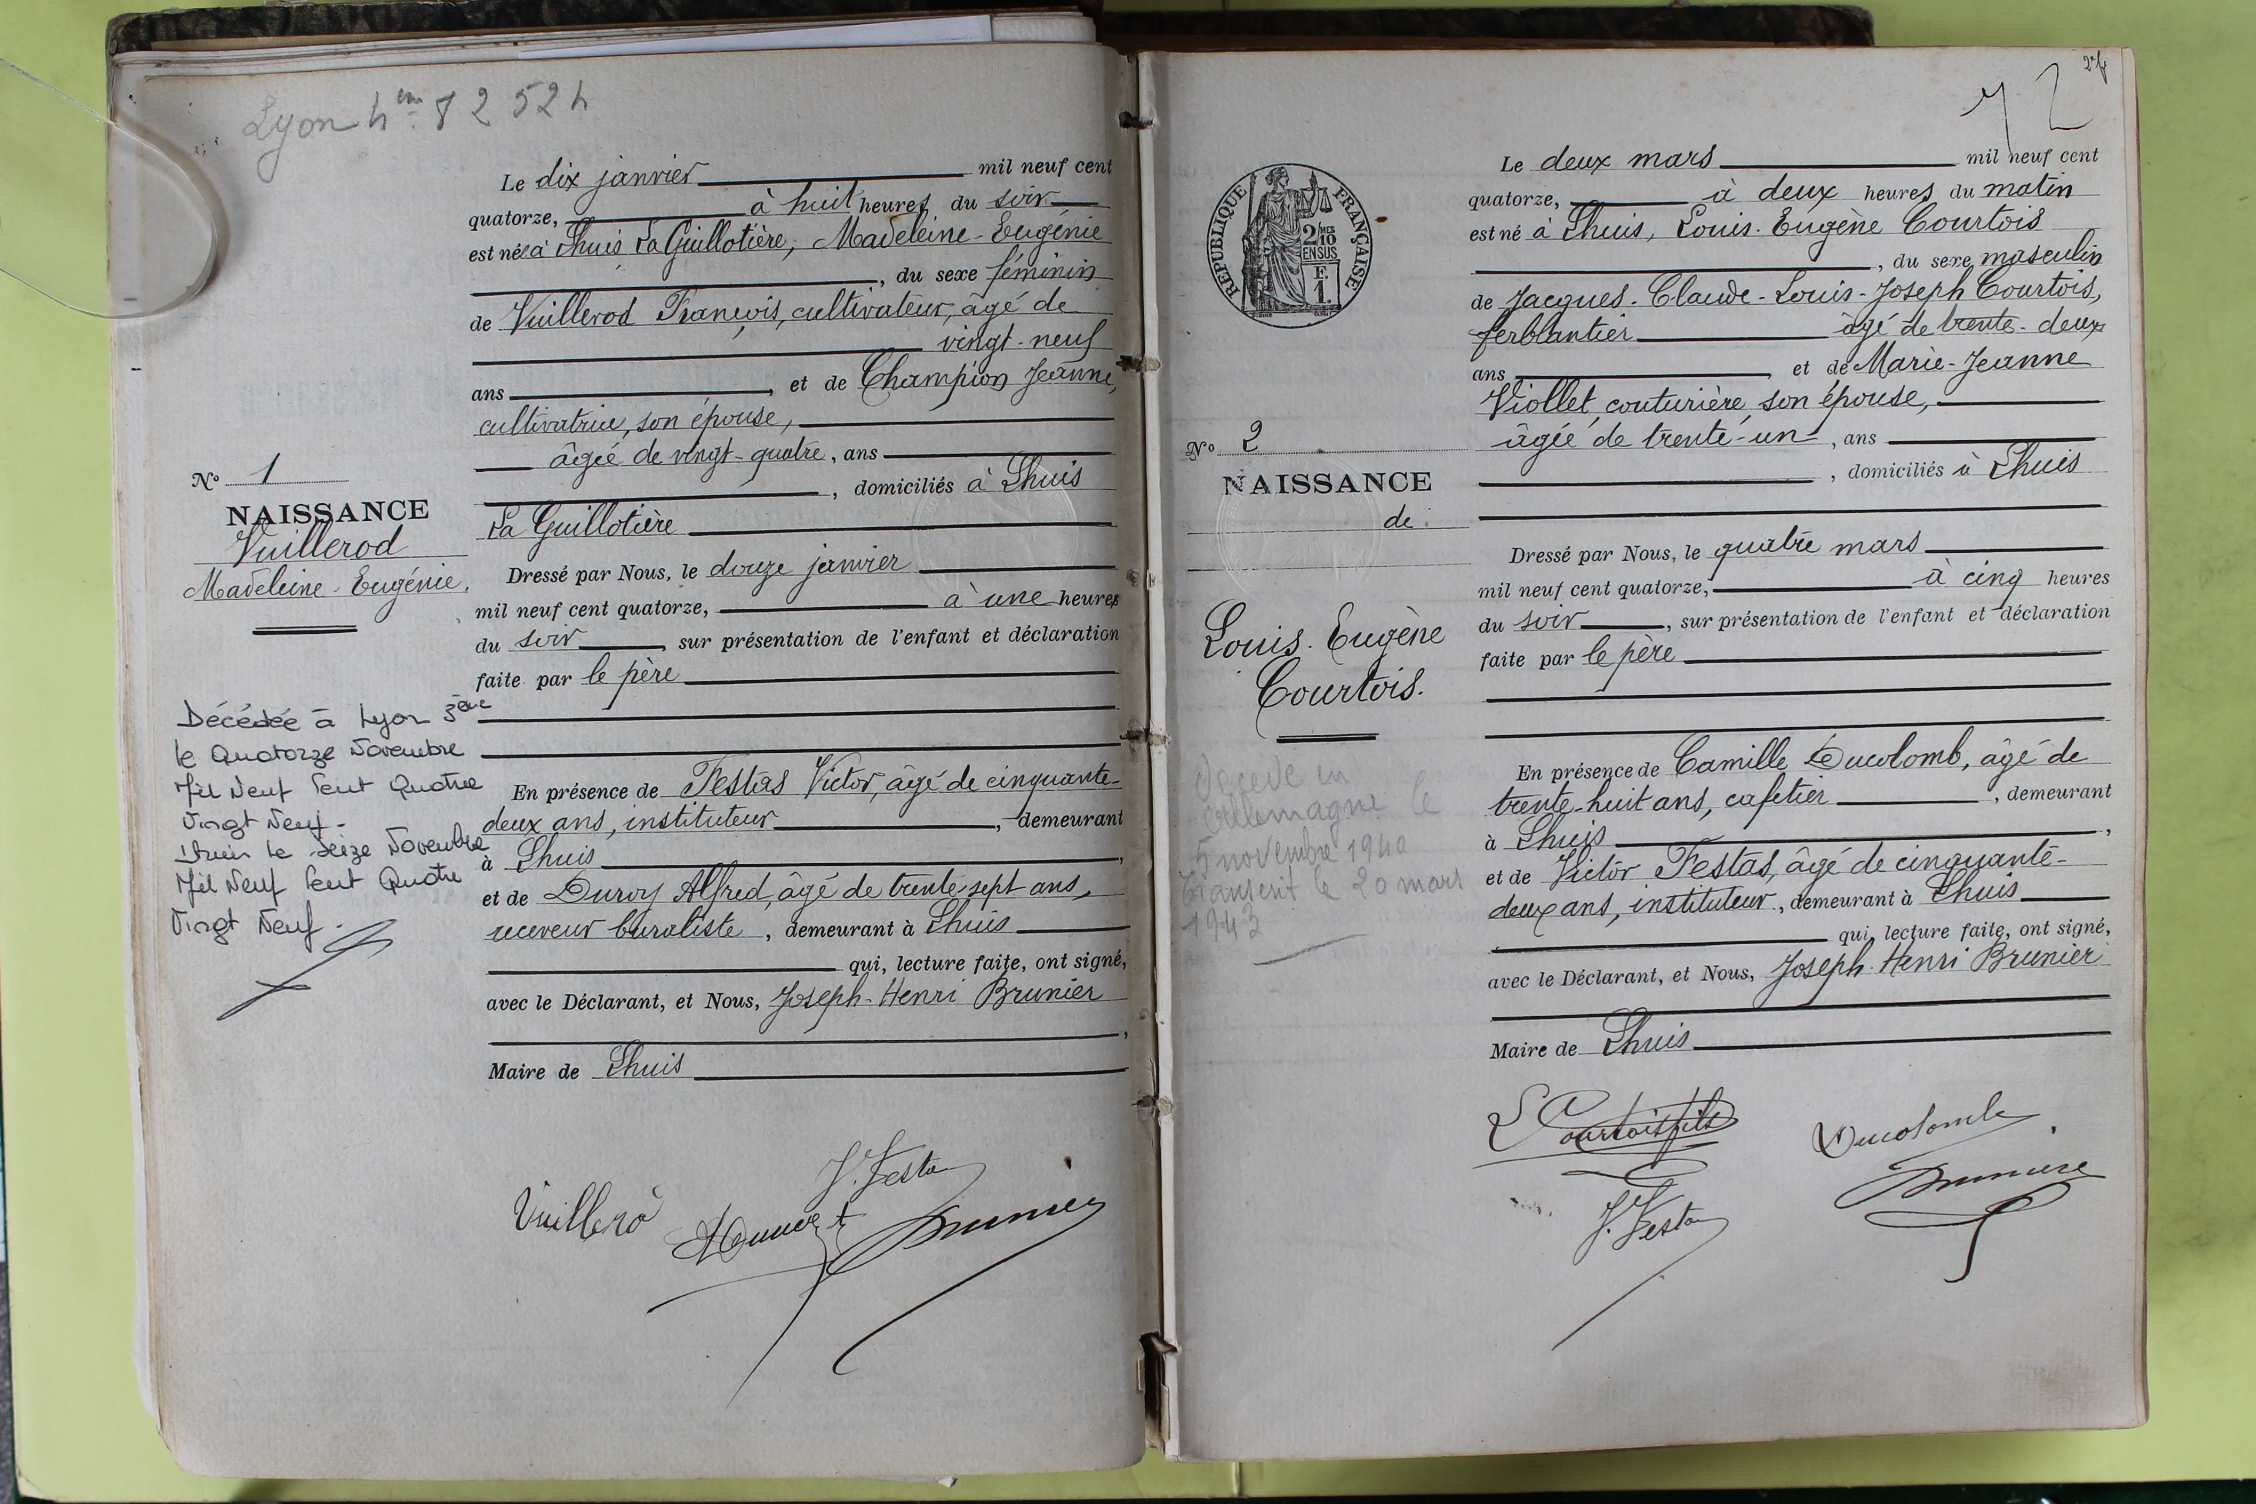 Lyon 4em 8 2 52 h
Le dix janvier mil neuf cent
quatorze, à huit heures du soir
est née à Lhuis La Guillotière, Madeleine-Eugénie
, du sexe féminin
de Vuillerod François, cultivateur, âgé de
vingt-neuf
ans , et de Champion Jeanne,
cultivatrice, son épouse,
âgée de vingt-quatre, ans
, domiciliés à Lhuis
La Guillotière
Dressé par Nous, le douze janvier
mil neuf cent quatorze, à une heures
du soir , sur présentation de l'enfant et déclaration
faite par le père
En présence de Festas Victor, âgé de cinquante-
deux ans, instituteur , demeurant
à Lhuis ,
et de Duroy Alfred, âgé de trente-sept ans,
receveur buraliste , demeurant à Lhuis
qui, lecture faite, ont signé,
avec le Déclarant, et Nous, Joseph-Henri Brunier
,
Maire de Lhuis
No 1
NAISSANCE
Vuillerod
Madeleine-Eugénie.
Décédée à Lyon 3ème
le Quatorze Novembre
Mil Neuf Cent Quatre
Vingt Neuf.
le Seize Novembre
Mil Neuf Cent Quatre
Vingt Neuf.
Vuillerod
V. Festas
Brunier
2
Le deux mars mil neuf cent
quatorze, à deux heures du matin
est né à Lhuis, Louis-Eugène Courtois
, du sexe masculin
de Jacques-Claude-Louis-Joseph Courtois,
ferblantier âgé de trente-deux
ans et de Marie-Jeanne
Viollet, couturière, son épouse,
âgée de trente-un , ans
, domiciliés à Lhuis
Dressé par Nous, le quatre mars
mil neuf cent quatorze, à cinq heures
du soir , sur présentation de l'enfant et déclaration
faite par le père
En présence de Camille Ducolomb, âgé de
trente-huit ans, cafetier , demeurant
à Lhuis ,
et de Victor Festas, âgé de cinquante-
deux ans, instituteur , demeurant à Lhuis
qui, lecture faite, ont signé,
avec le Déclarant, et Nous, Joseph-Henri Brunier
Maire de Lhuis
RÉPUBLIQUE FRANÇAISE
2/10MES
EN SUS
F.
1.
No 2
NAISSANCE
de
Louis-Eugène
Courtois.
Décédé en
Allemagne le
5 novembre 1940
transcrit le 20 mars
1943
L Courtois fils
Ducolomb
V. Festas
Brunier